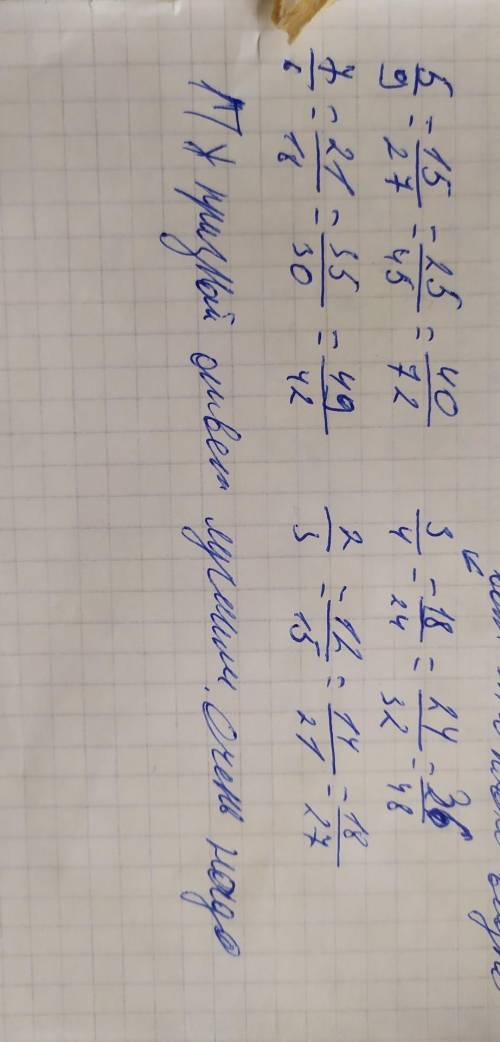 5/9 = 15/27 = 25/45 = 40/72 3/4 = 18/24 = 24/32 = 36/48
7/6 = 21/18 = 35/30 = 49/42 2/3 = 12/15 = 14/21 = 18/27
признай ответ лучшим. Очень надо